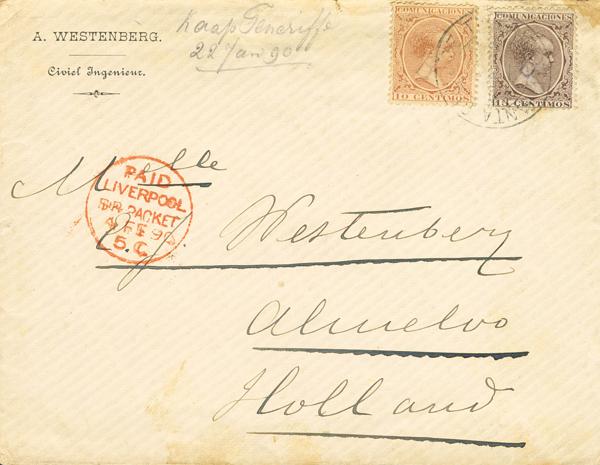 A. WESTENBERG.
Civiel Ingenieur.
Kaap Teneriffe
22 Jan 90
COMUNICACIONES
10 CENTIMOS
COMUNICACIONES
15 CENTIMOS
PAID
LIVERPOOL
BR. PACKET
4 FE 90
5. C
Melle
Westenberg
Almelo
Holland